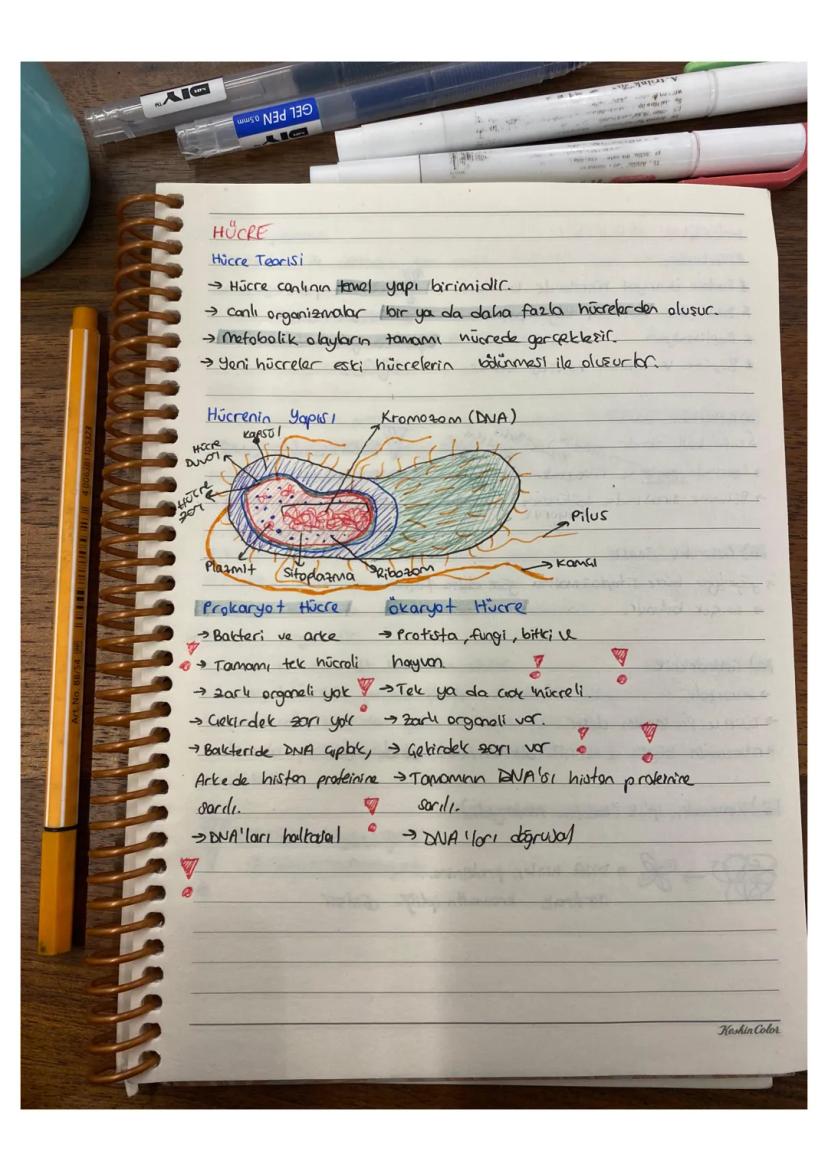 DIY
GEL PEN 0.5mm
DIY
HÜCRE
Hücre Teorisi
→ Hücre canlının temel yapı birimidir.
→ Canlı organizmalar bir ya da daha fazla hücrelerden oluşur.
→ Metobolik olayların tamamı hücrede gerçekleşir.
→ Yeni hücreler eski hücrelerin bölünmesi ile oluşurlar.
Hücrenin Yapısı
Kromozom (DNA)
Kapsül
Hücre Duvarı
Hücre zarı
Pilus
Kamçı
Plazmit
Sitoplazma
Ribozom
Prokaryot Hücre
→ Bakteri ve arke
→ Tamamı tek hücreli
→ Zarlı organeli yok
→ Çekirdek zarı yok
→ Bakteride DNA çıplak,
Arkede histon proteinine
sarılı.
→ DNA'ları halkasal
Ökaryot Hücre
→ Protista, fungi, bitki ve
hayvan
→ Tek ya da çok hücreli.
→ Zarlı organeli var.
→ Çekirdek zarı var
→ Tamamının DNA'sı histon proteinine
sarılı.
→ DNA'ları doğrusal
Art. No. 88/54
4 006381 105323
KeskinColor